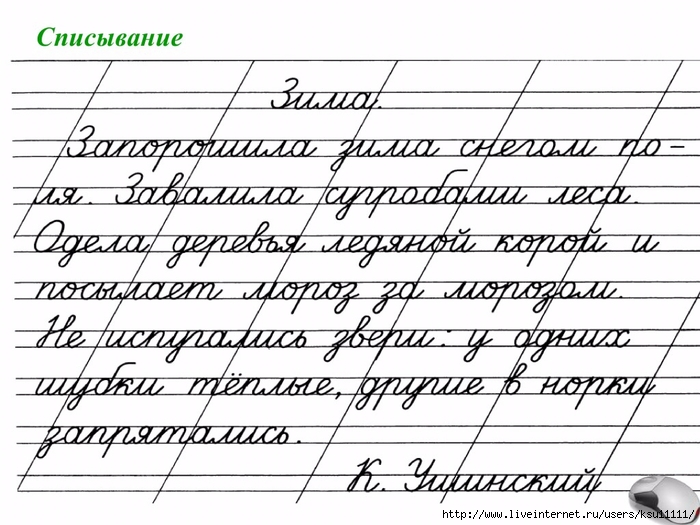 Списывание
Зима.
Запорошила зима снегом по-
ля. Завалила сугробами леса.
Одела деревья ледяной корой и
посылает мороз за морозом.
Не испугались звери: у одних
шубки тёплые, другие в норки
запрятались.
К. Ушинский
http://www.liveinternet.ru/users/ksu11111/